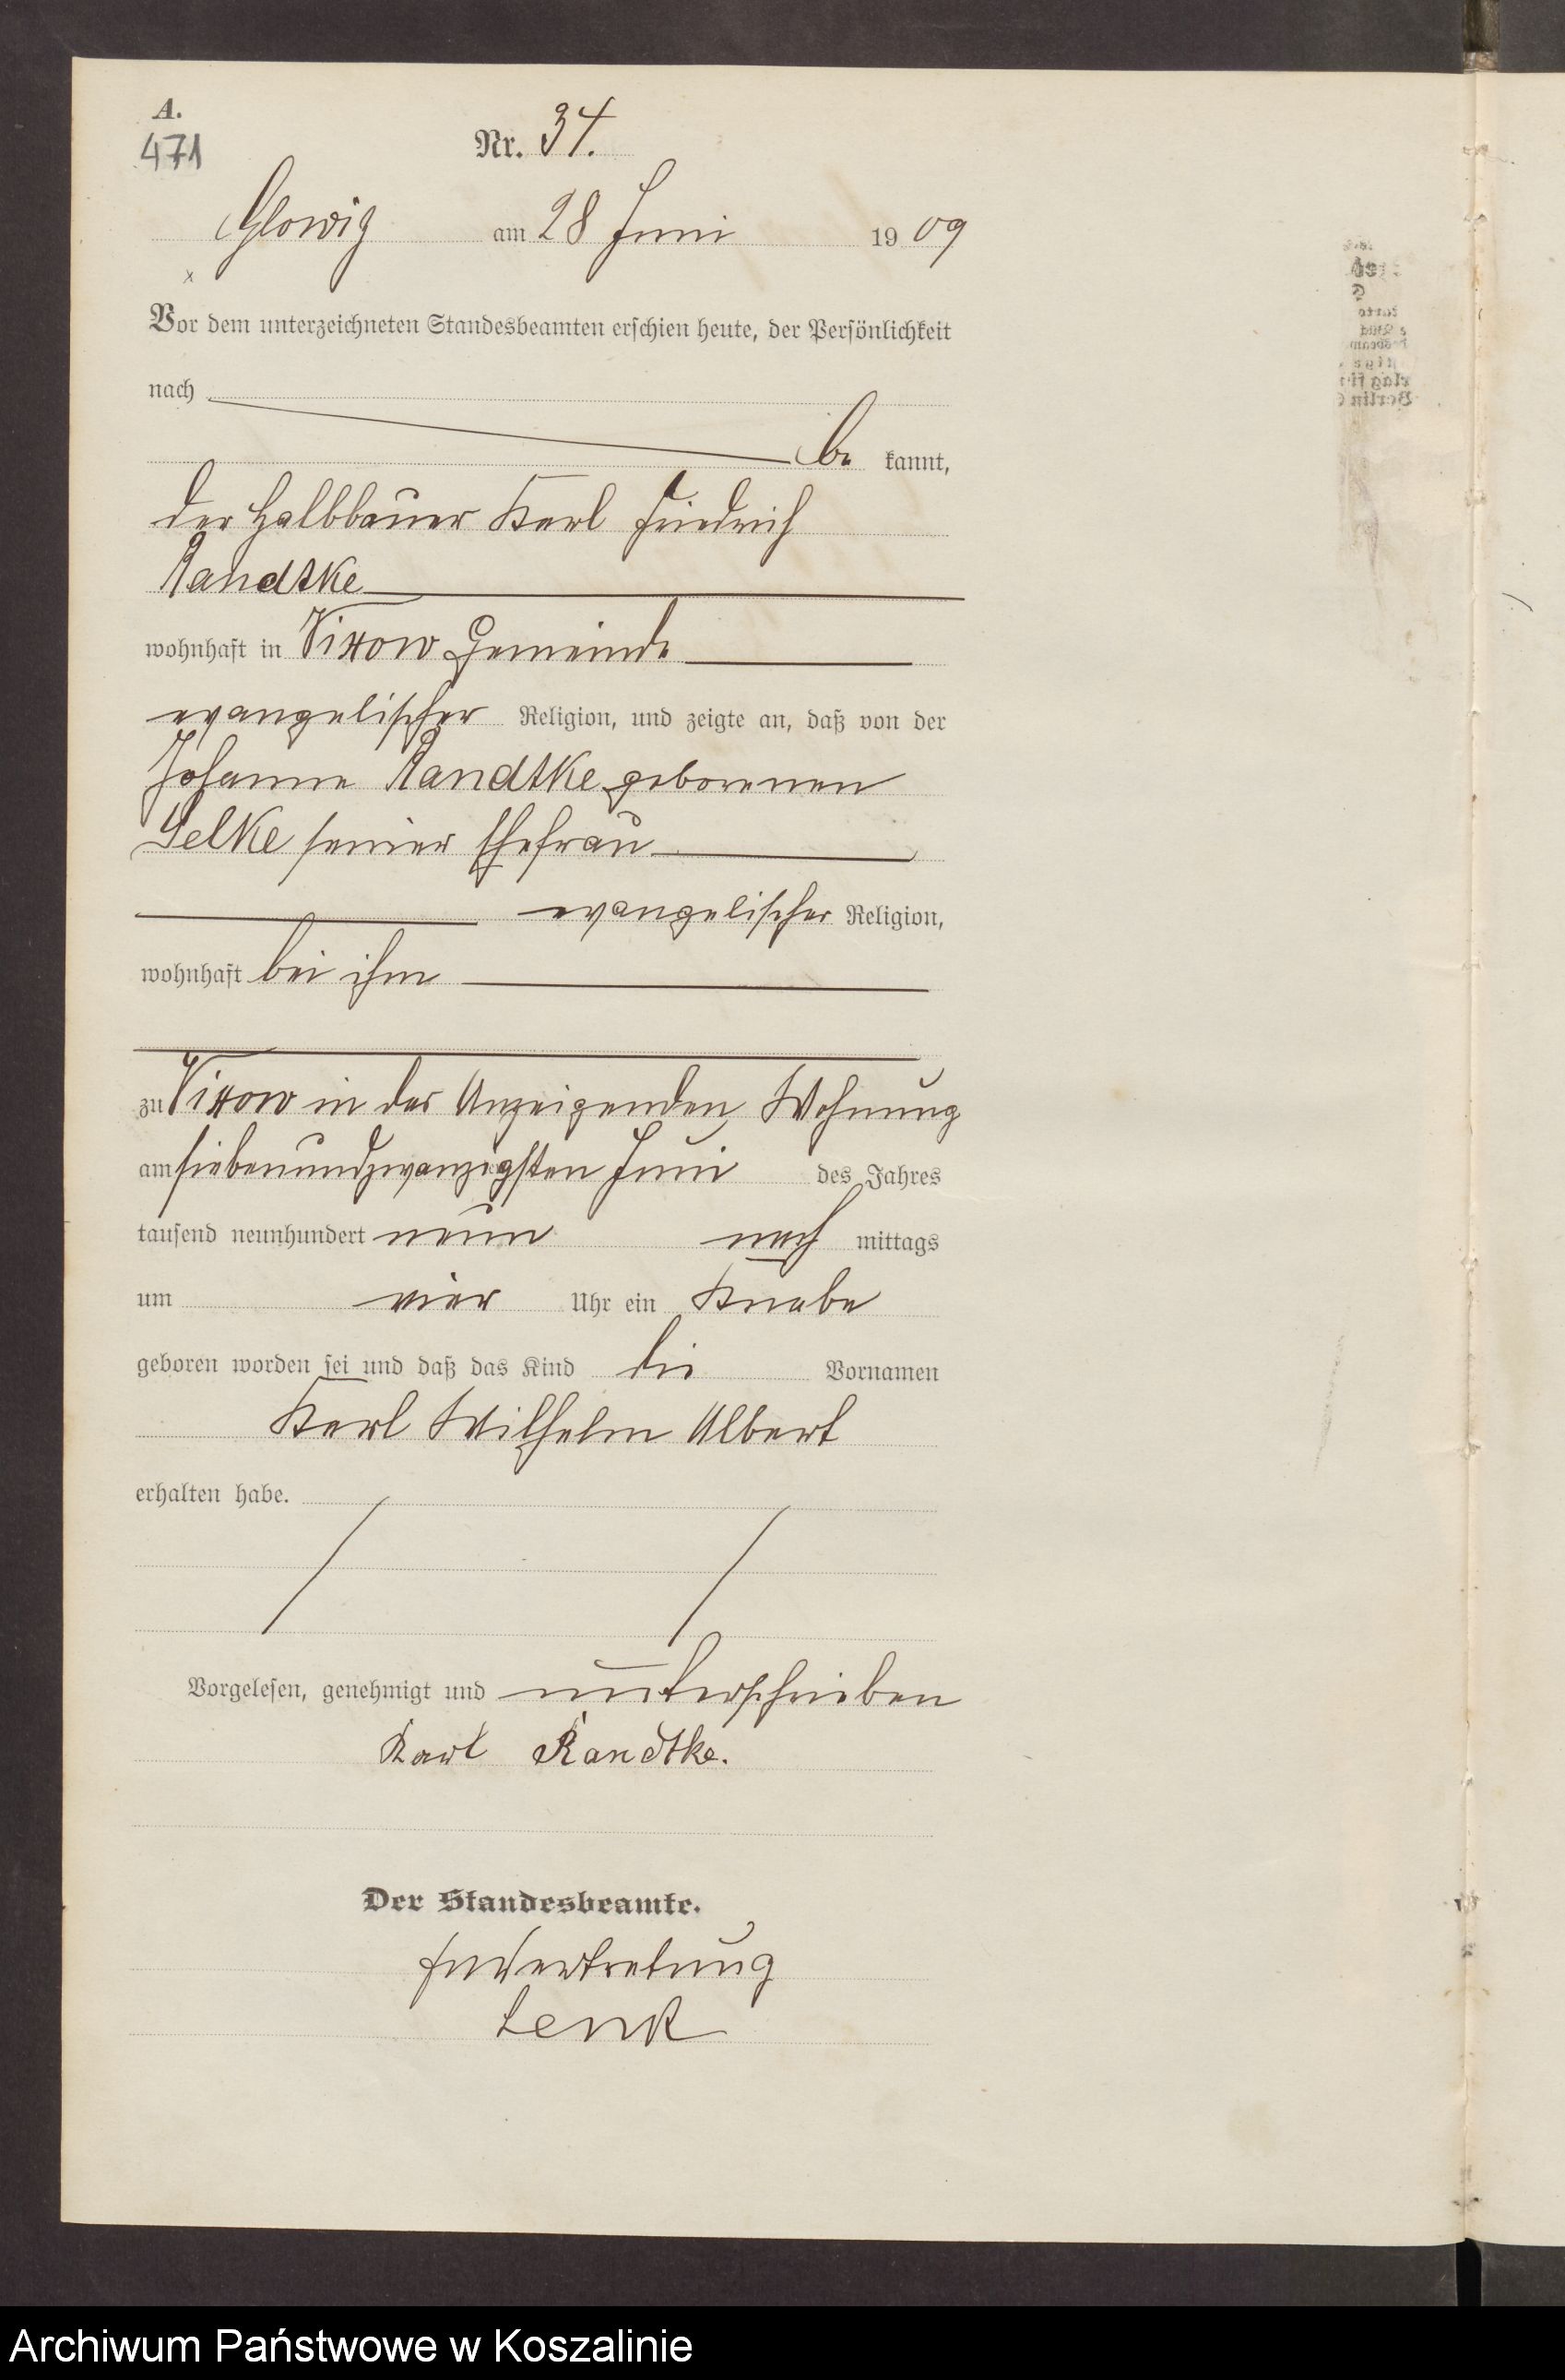 A.
471
Nr. 34.
Glowitz am 28 Juni 1909
Vor dem unterzeichneten Standesbeamten erschien heute, der Persönlichkeit
nach
be kannt,
der Halbbauer Karl Friedrich
Randtke
wohnhaft in Vixow Gemeinde
evangelischer Religion, und zeigte an, daß von der
Johanne Randtke geborenen
Selke seiner Ehefrau
evangelischer Religion,
wohnhaft bei ihm
zu Vixow in des Anzeigenden Wohnung
am siebenundzwanzigsten Juni des Jahres
tausend neunhundert neun nach mittags
um vier Uhr ein Knabe
geboren worden sei und daß das Kind die Vornamen
Karl Wilhelm Albert
erhalten habe.
Vorgelesen, genehmigt und unterschrieben
Karl Randtke.
Der Standesbeamte.
In Vertretung
Lenk
Archiwum Państwowe w Koszalinie